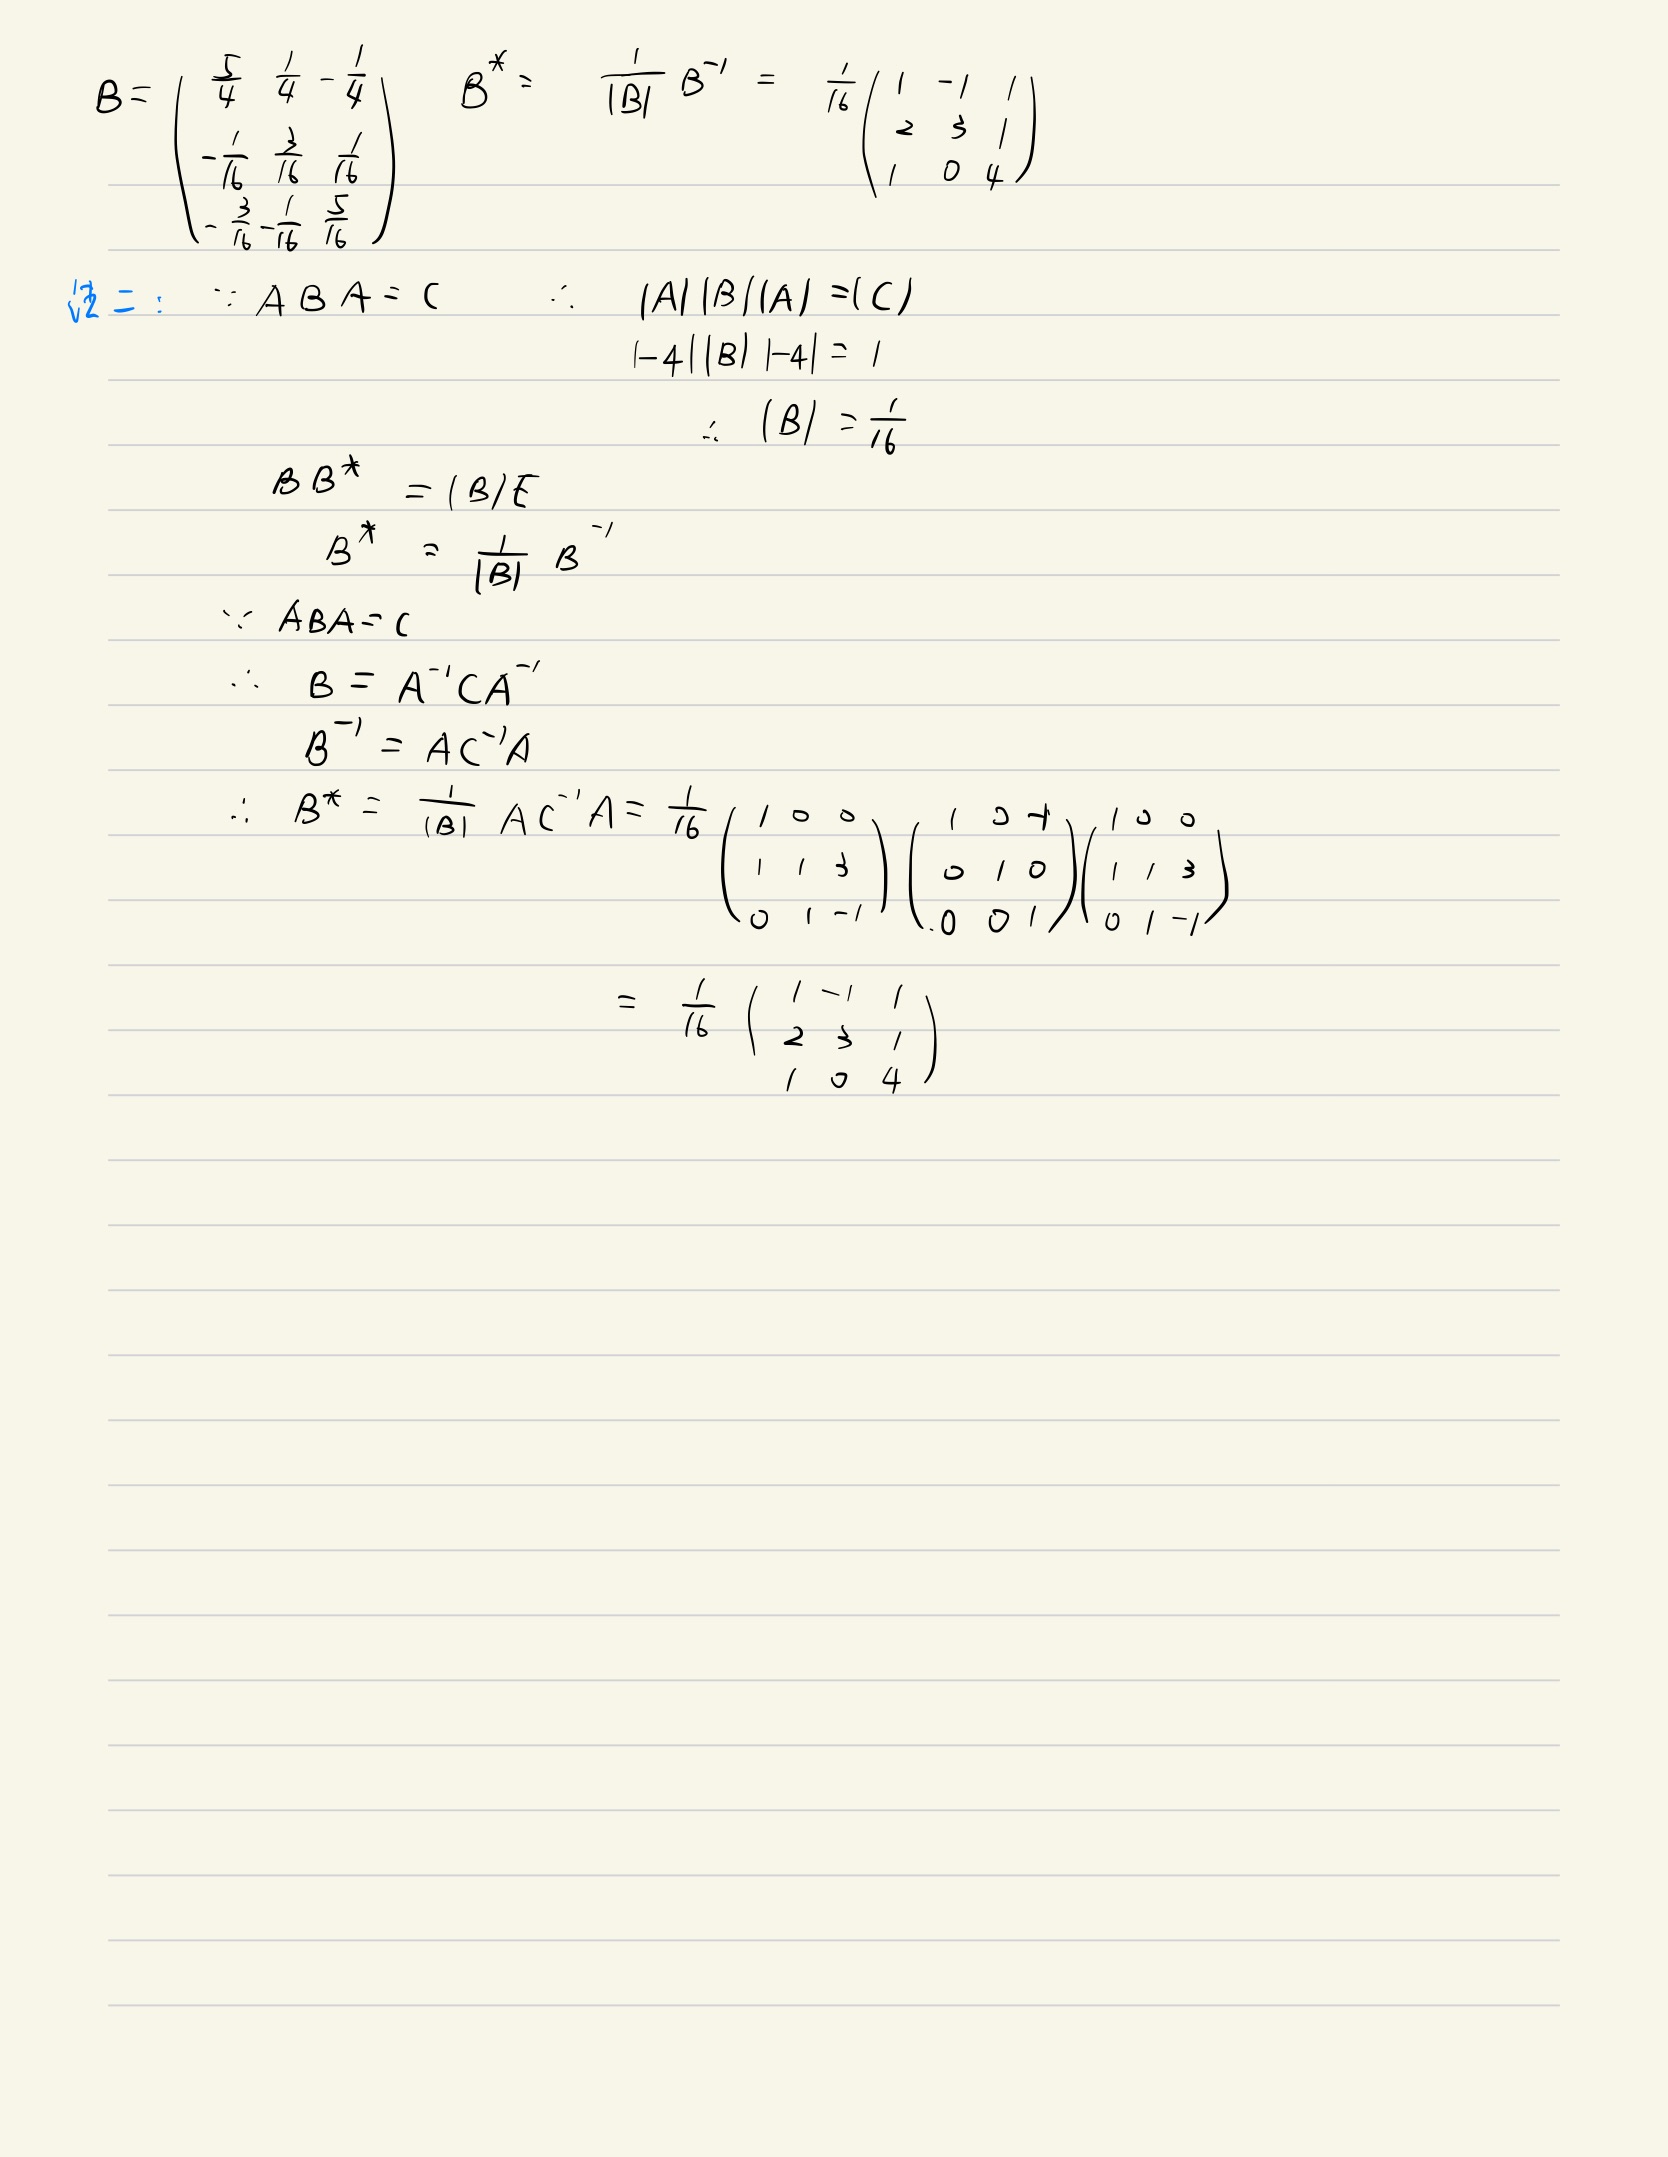 B = ( 5/4 1/4 -1/4 B* = 1/|B| B⁻¹ = 1/16 ( 1 -1 1
-1/16 3/16 1/16 2 3 1
-3/16 -1/16 5/16 ) 1 0 4 )
法二: ∵ ABA = C ∴ |A||B||A| = |C|
|-4||B||-4| = 1
∴ |B| = 1/16
BB* = |B|E
B* = 1/|B| B⁻¹
∵ ABA = C
∴ B = A⁻¹CA⁻¹
B⁻¹ = AC⁻¹A
∴ B* = 1/|B| AC⁻¹A = 1/16 ( 1 0 0 ( 1 0 -1 ( 1 0 0
1 1 3 0 1 0 1 1 3
0 1 -1 ) 0 0 1 ) 0 1 -1 )
= 1/16 ( 1 -1 1
2 3 1
1 0 4 )